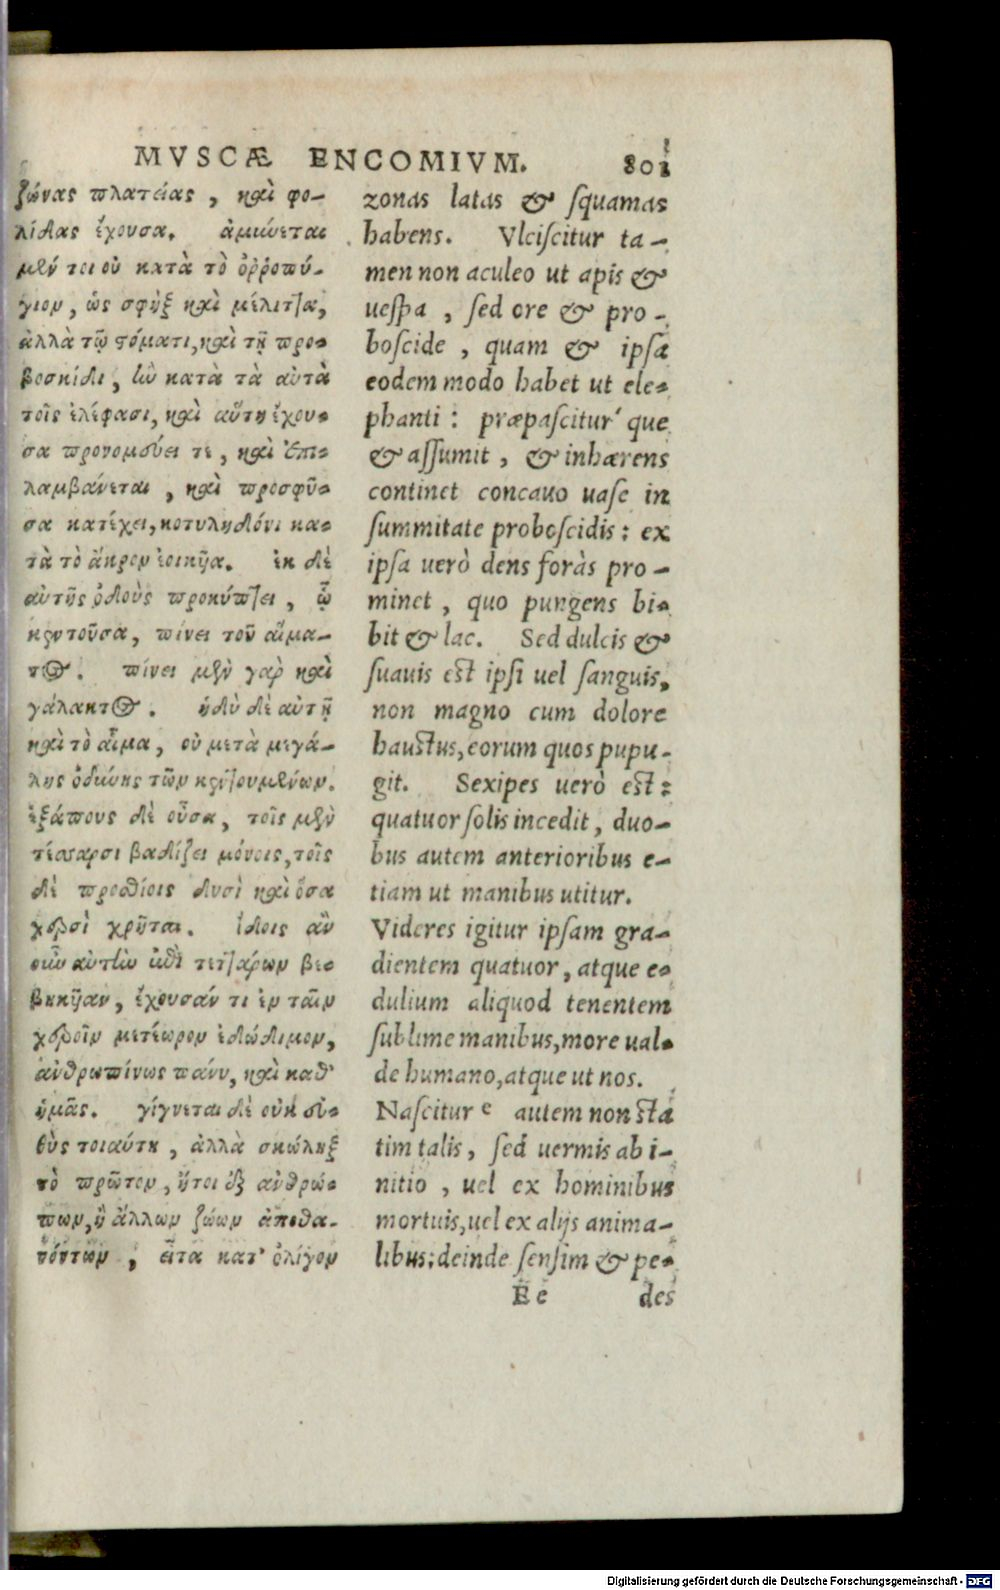 MVSCÆ ENCOMIVM. 801
ζώνας πλατείας, καὶ φο-
λίδας ἔχουσα. ἀμύνεται
μέν τοι οὐ κατὰ τὸ ὀῤῥοπύ-
γιον, ὡς σφὴξ καὶ μέλιττα,
ἀλλὰ τῷ στόματι, καὶ τῇ προ-
βοσκίδι, ἣν κατὰ τὰ αὐτὰ
τοῖς ἐλέφασι, καὶ αὕτη ἔχου-
σα προνομεύει τε, καὶ ἐπι-
λαμβάνεται, καὶ προσφῦ-
σα κατέχει, κοτυληδόνι κα-
τὰ τὸ ἄκρον ἐοικῦα. ἐκ δὲ
αὐτῆς ὀδοὺς προκύπτει, ᾧ
κεντοῦσα, πίνει τοῦ αἵμα-
τος. πίνει μὲν γὰρ καὶ
γάλακτος. ἡδὺ δὲ αὐτῇ
καὶ τὸ αἷμα, οὐ μετὰ μεγά-
λης ὀδύνης τῶν κεντουμένων.
ἑξάπους δὲ οὖσα, τοῖς μὲν
τέσσαρσι βαδίζει μόνοις, τοῖς
δὲ προσθίοις δυσὶ καὶ ὅσα
χερσὶ χρῆται. ἴδοις ἂν
οὖν αὐτὴν ἐπὶ τεττάρων βε-
βηκῦαν, ἔχουσάν τι ἐν ταῖν
χεροῖν μετέωρον ἐδώδιμον,
ἀνθρωπίνως πάνυ, καὶ καθ'
ἡμᾶς. γίγνεται δὲ οὐκ εὐ-
θὺς τοιαύτη, ἀλλὰ σκώληξ
τὸ πρῶτον, ἤτοι ἐξ ἀνθρώ-
πων, ἢ ἄλλων ζώων ἀποθα-
νόντων, εἶτα κατ' ὀλίγον
zonas latas & squamas
habens. Vlciscitur ta-
men non aculeo ut apis &
uespa, sed ore & pro-
boscide, quam & ipsa
eodem modo habet ut ele-
phanti: præpascitur' que
& assumit, & inhærens
continet concauo uase in
summitate proboscidis: ex
ipsa uerò dens foràs pro-
minet, quo pungens bi-
bit & lac. Sed dulcis &
suauis est ipsi uel sanguis,
non magno cum dolore
haustus, eorum quos pupu-
git. Sexipes uerò est:
quatuor solis incedit, duo-
bus autem anterioribus e-
tiam ut manibus utitur.
Videres igitur ipsam gra-
dientem quatuor, atque e-
dulium aliquod tenentem
sublime manibus, more ual-
de humano, atque ut nos.
Nascitur e autem non sta
tim talis, sed uermis ab i-
nitio, uel ex hominibus
mortuis, uel ex alijs anima-
libus: deinde sensim & pe-
Ee des
Digitalisierung gefördert durch die Deutsche Forschungsgemeinschaft - DFG